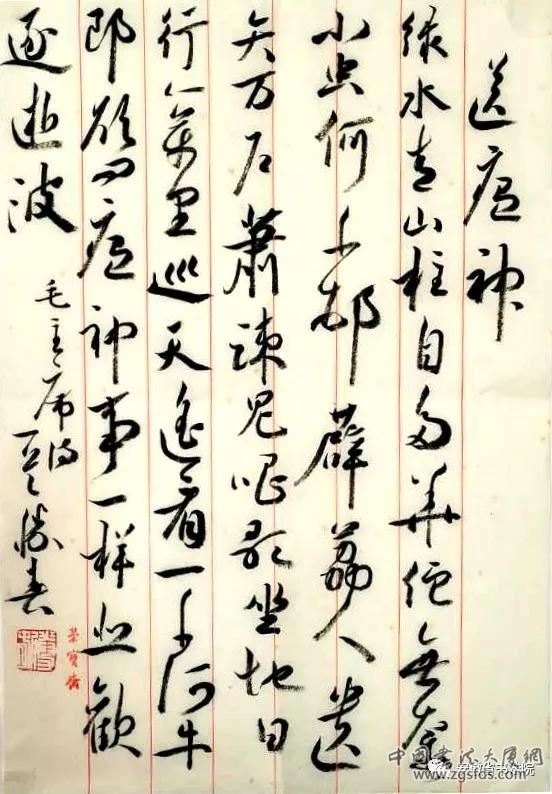 送瘟神
绿水青山枉自多華佗無奈
小虫何千邨薜荔人遗
矢万户蕭疎鬼唱歌坐地日
行八萬里巡天遥看一千河牛
郎欲问瘟神事一样悲歡
逐逝波
毛主席诗
荣寶斋
中国书法大厦网
www.zgsfds.com